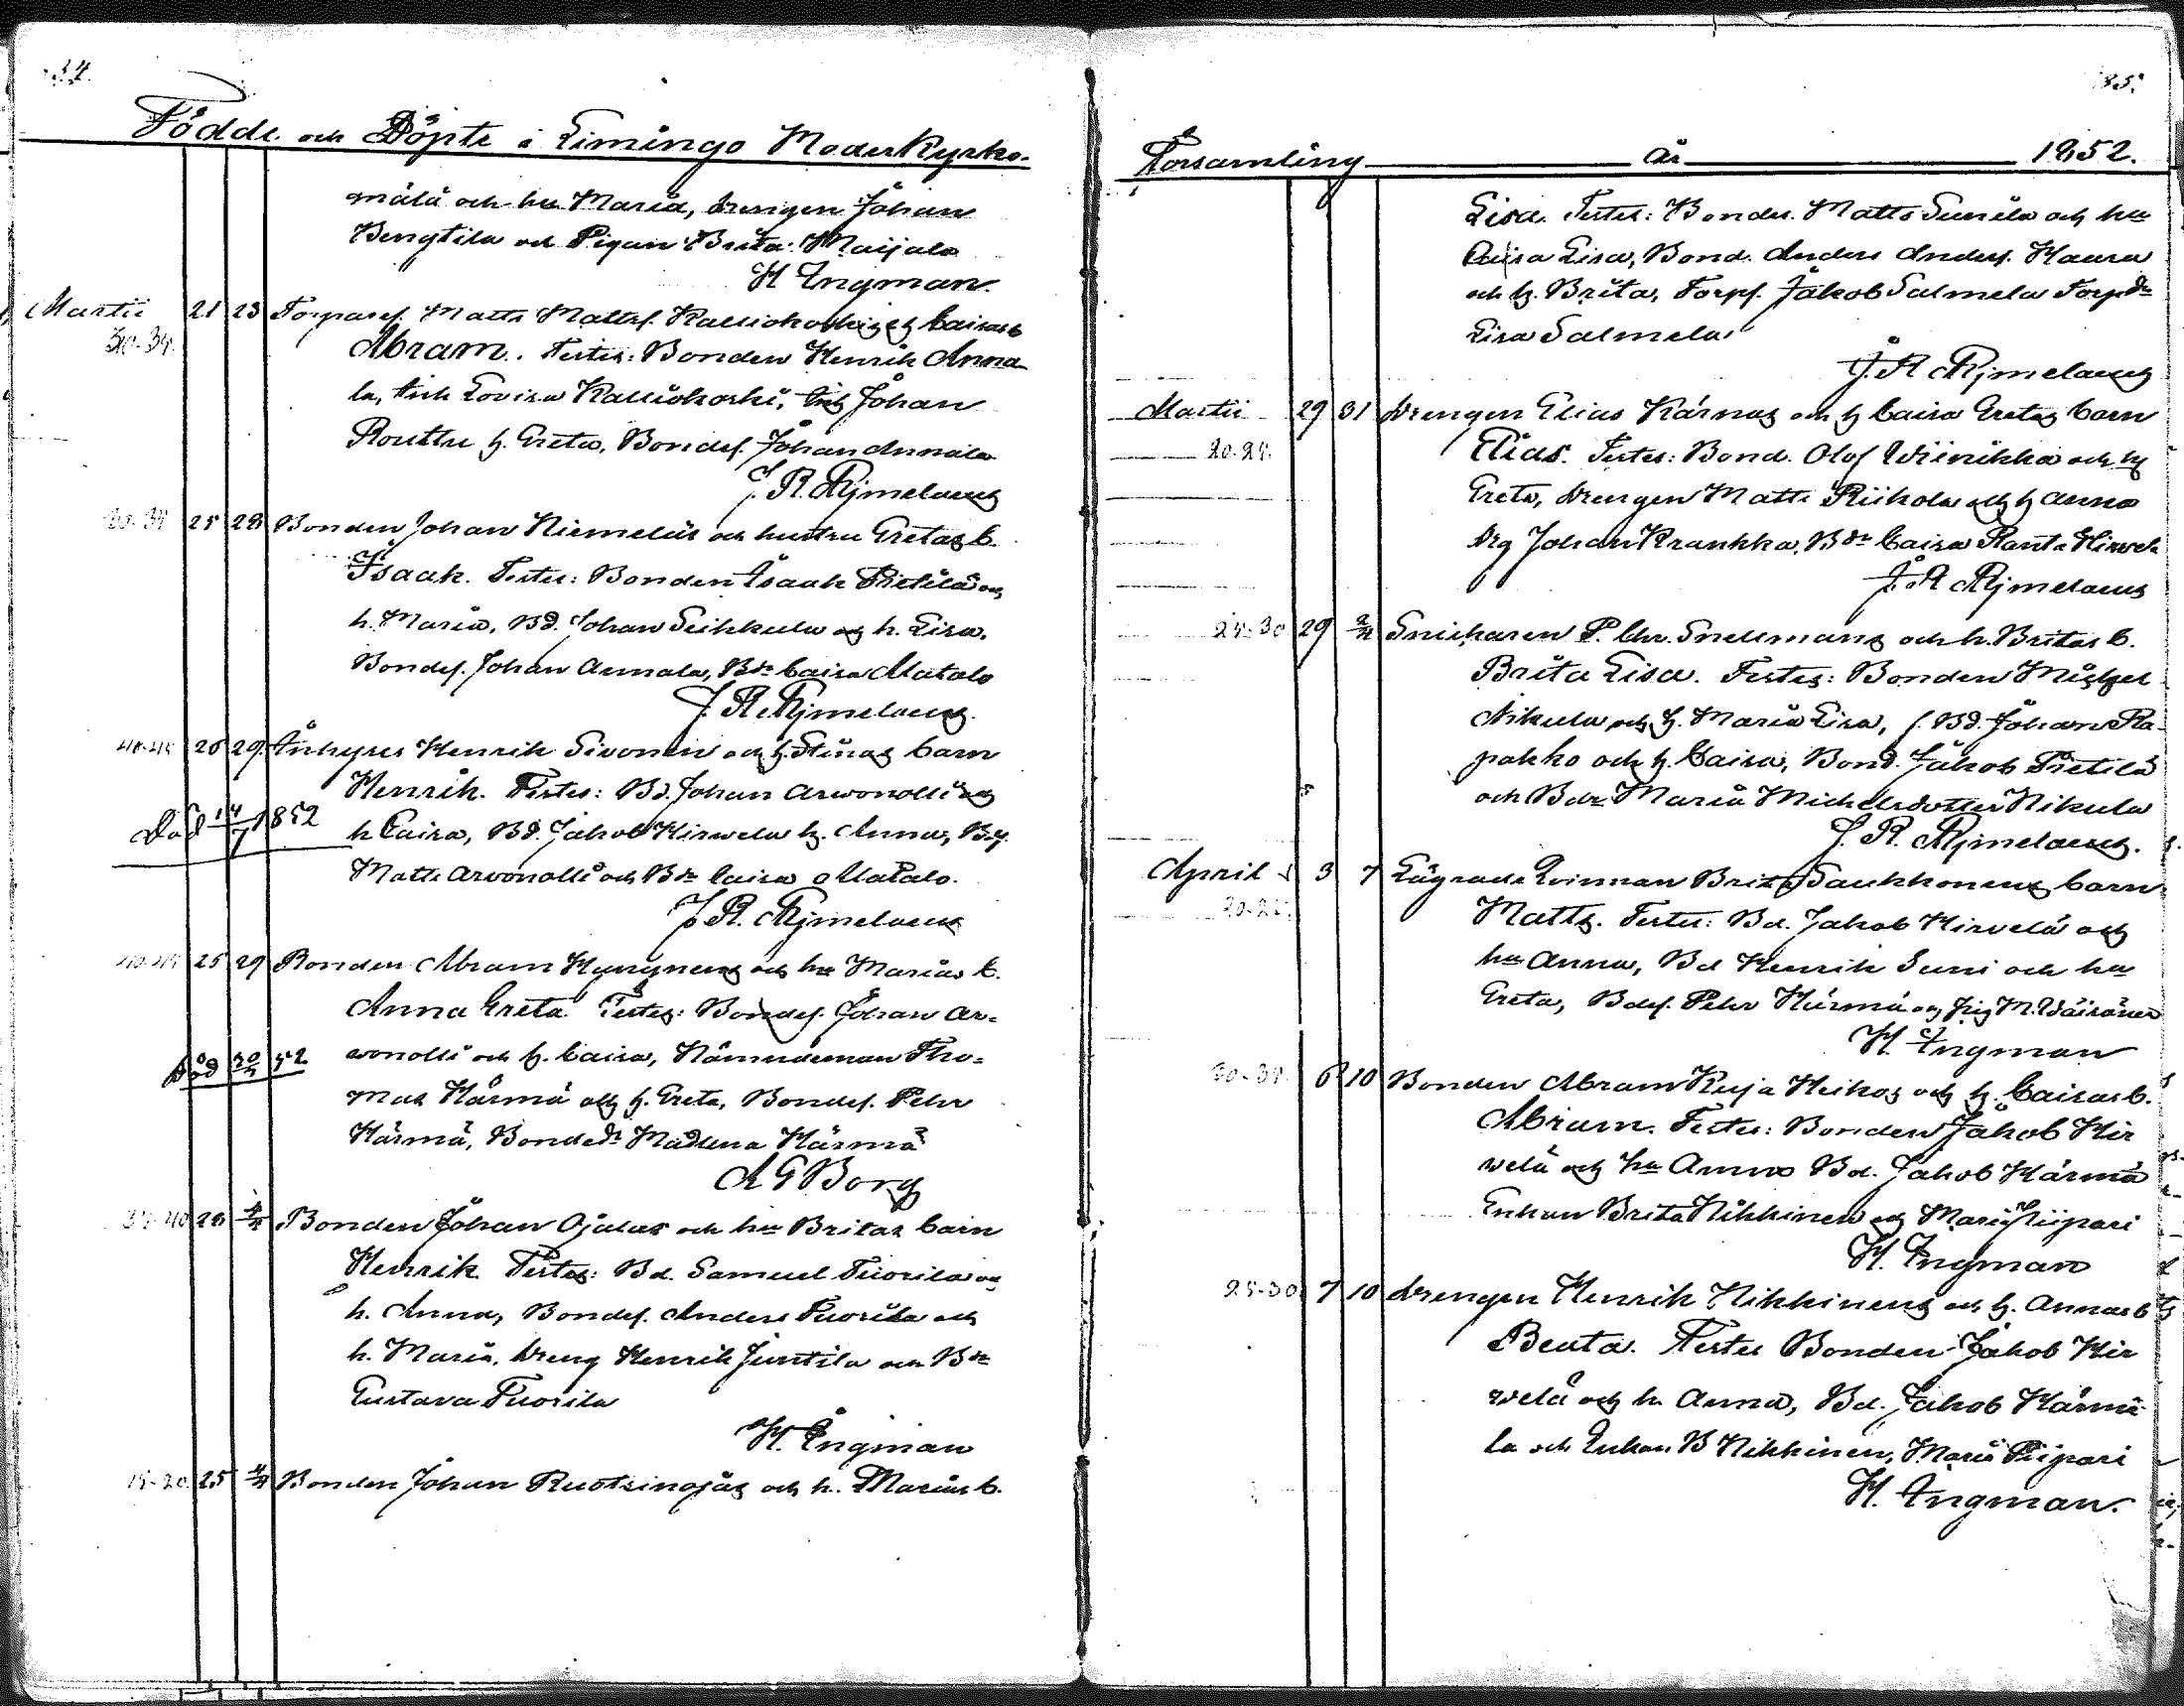 34.
Födde och Döpte i Limingo Moderkyrko-
mälä och hu Maria, drengen Johan
Bengtila och Pigan Brita Maijala
H Ingman.
Martii 21 23 Torparef. Matts Mattsf. Kalliokoskis och Caisas b
30-35. Abram. Testes: Bonden Henrik Anna-
la, Lovisa Kalliokoski, Johan
Routtu h. Greta, Bondef. Johan Annala
J. R. Hjmelaeus
30-35 25 28 Bonden Johan Niemeläs och hustru Gretas b.
Isaak. Testes: Bonden Isaak Pietilä och
h. Maria, Bd. Johan Seikkula och h. Lisa.
Bondef. Johan Annala, Bdr Caisa Matala
J. R. Hjmelaeus.
40-45 26 29. Inhyses Henrik Sivonen och h. Stinas barn
Henrik. Testes: Bd. Johan Arwonolli och
Död 14/7 1852 h Caisa, Bd. Jakob Hirwela h. Anna, Bdf.
Matts Arvonolli och Bdr Caisa Matala.
J. R. Hjmelaeus
40-45 25 29 Bonden Abram Hyrynens och hu Marias b.
Anna Greta. Testes: Bondef. Johan Ar-
wonolli och h. Caisa, Nämndeman Tho-
Död 30/ 52
mas Härmä och h. Greta, Bondef. Pehr
Härmä, Bondedr Madlena Härmä
A G Borg
35-40 28 4/4 Bonden Johan Ojalas och hu Britas barn
Henrik. Testes: Bd. Samuel Tuorila och
h. Anna, Bondef. Anders Tuorila och
h. Maria, Dreng Henrik Juntila och Bdr
Gustava Tuorila
H. Ingman
15-20 25 4/4 Bonden Johan Ruotsinojas och h. Marias b.
35.
Församling År 1852.
Lisa. Testes: Bonden Matts Sunila och hu
Caisa Lisa, Bond. Anders Andersf. Haura
och h. Brita, Torpf. Jakob Salmela Torpdr
Lisa Salmela
J. R Hjmelaeus
Martii 29 31 Drengen Elias Kärnas och h Caisa Gretas barn
20-25. Elias. Testes: Bond. Olof Wiinikka och h
Greta, Drengen Matts Riikola och h Anna
Drg Johan Krankka, Bdr Caisa Ranta Hirwelä
J. R Hjmelaeus
25-30 29 2/4 Snickaren P. Chr. Snellmans och h. Britas b.
Brita Lisa. Testes: Bonden Michel
Nikula och h. Maria Lisa, f. Bd. Johan Ra-
pakko och h. Caisa, Bond. Jakob Pietilä
och Bdr Maria Michelsdotter Nikula
J. R. Hjmelaeus.
April 3 7 Lägrade Qvinnan Brita Saukkonens barn
20-25. Matts. Testes: Bd. Jakob Hirvelä och
hu Anna, Bd Henrik Suni och hu
Greta, Bdef. Pehr Härmä och Pig M. Wäisänen
H. Ingman
30-35. 6 10 Bonden Abram Kuja Heikas och h. Caisas b.
Abram. Testes: Bonden Jakob Hir
welä och hu Anna Bd. Jakob Härmä
Enkan Brita Nikkinen och Maria Piipari
H. Ingman
25-30 7 10 Drengen Henrik Nikkinens och h. Annas b
Beata. Testes Bonden Jakob Hir
welä och h. Anna, Bd. Jakob Härmä-
la och Enkan B Nikkinen, Maria Piipari
H. Ingman.